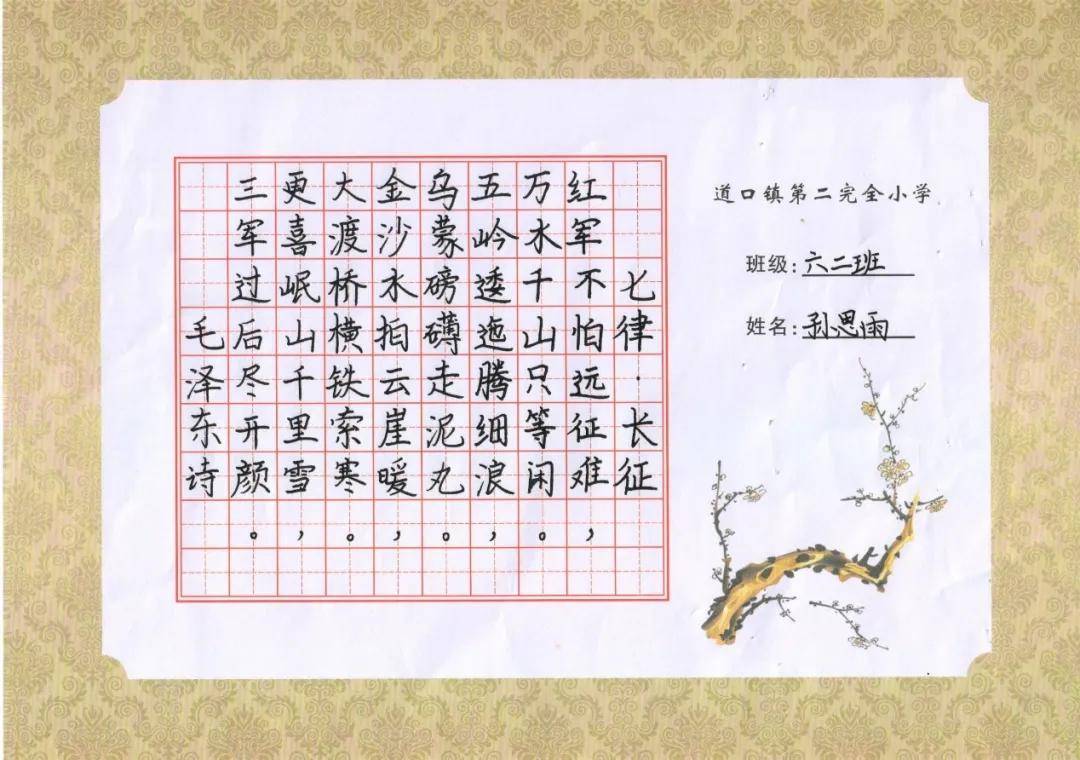 七律·长征
红军不怕远征难，
万水千山只等闲。
五岭逶迤腾细浪，
乌蒙磅礴走泥丸。
金沙水拍云崖暖，
大渡桥横铁索寒。
更喜岷山千里雪，
三军过后尽开颜。
毛泽东诗
道口镇第二完全小学
班级:六二班
姓名:思雨